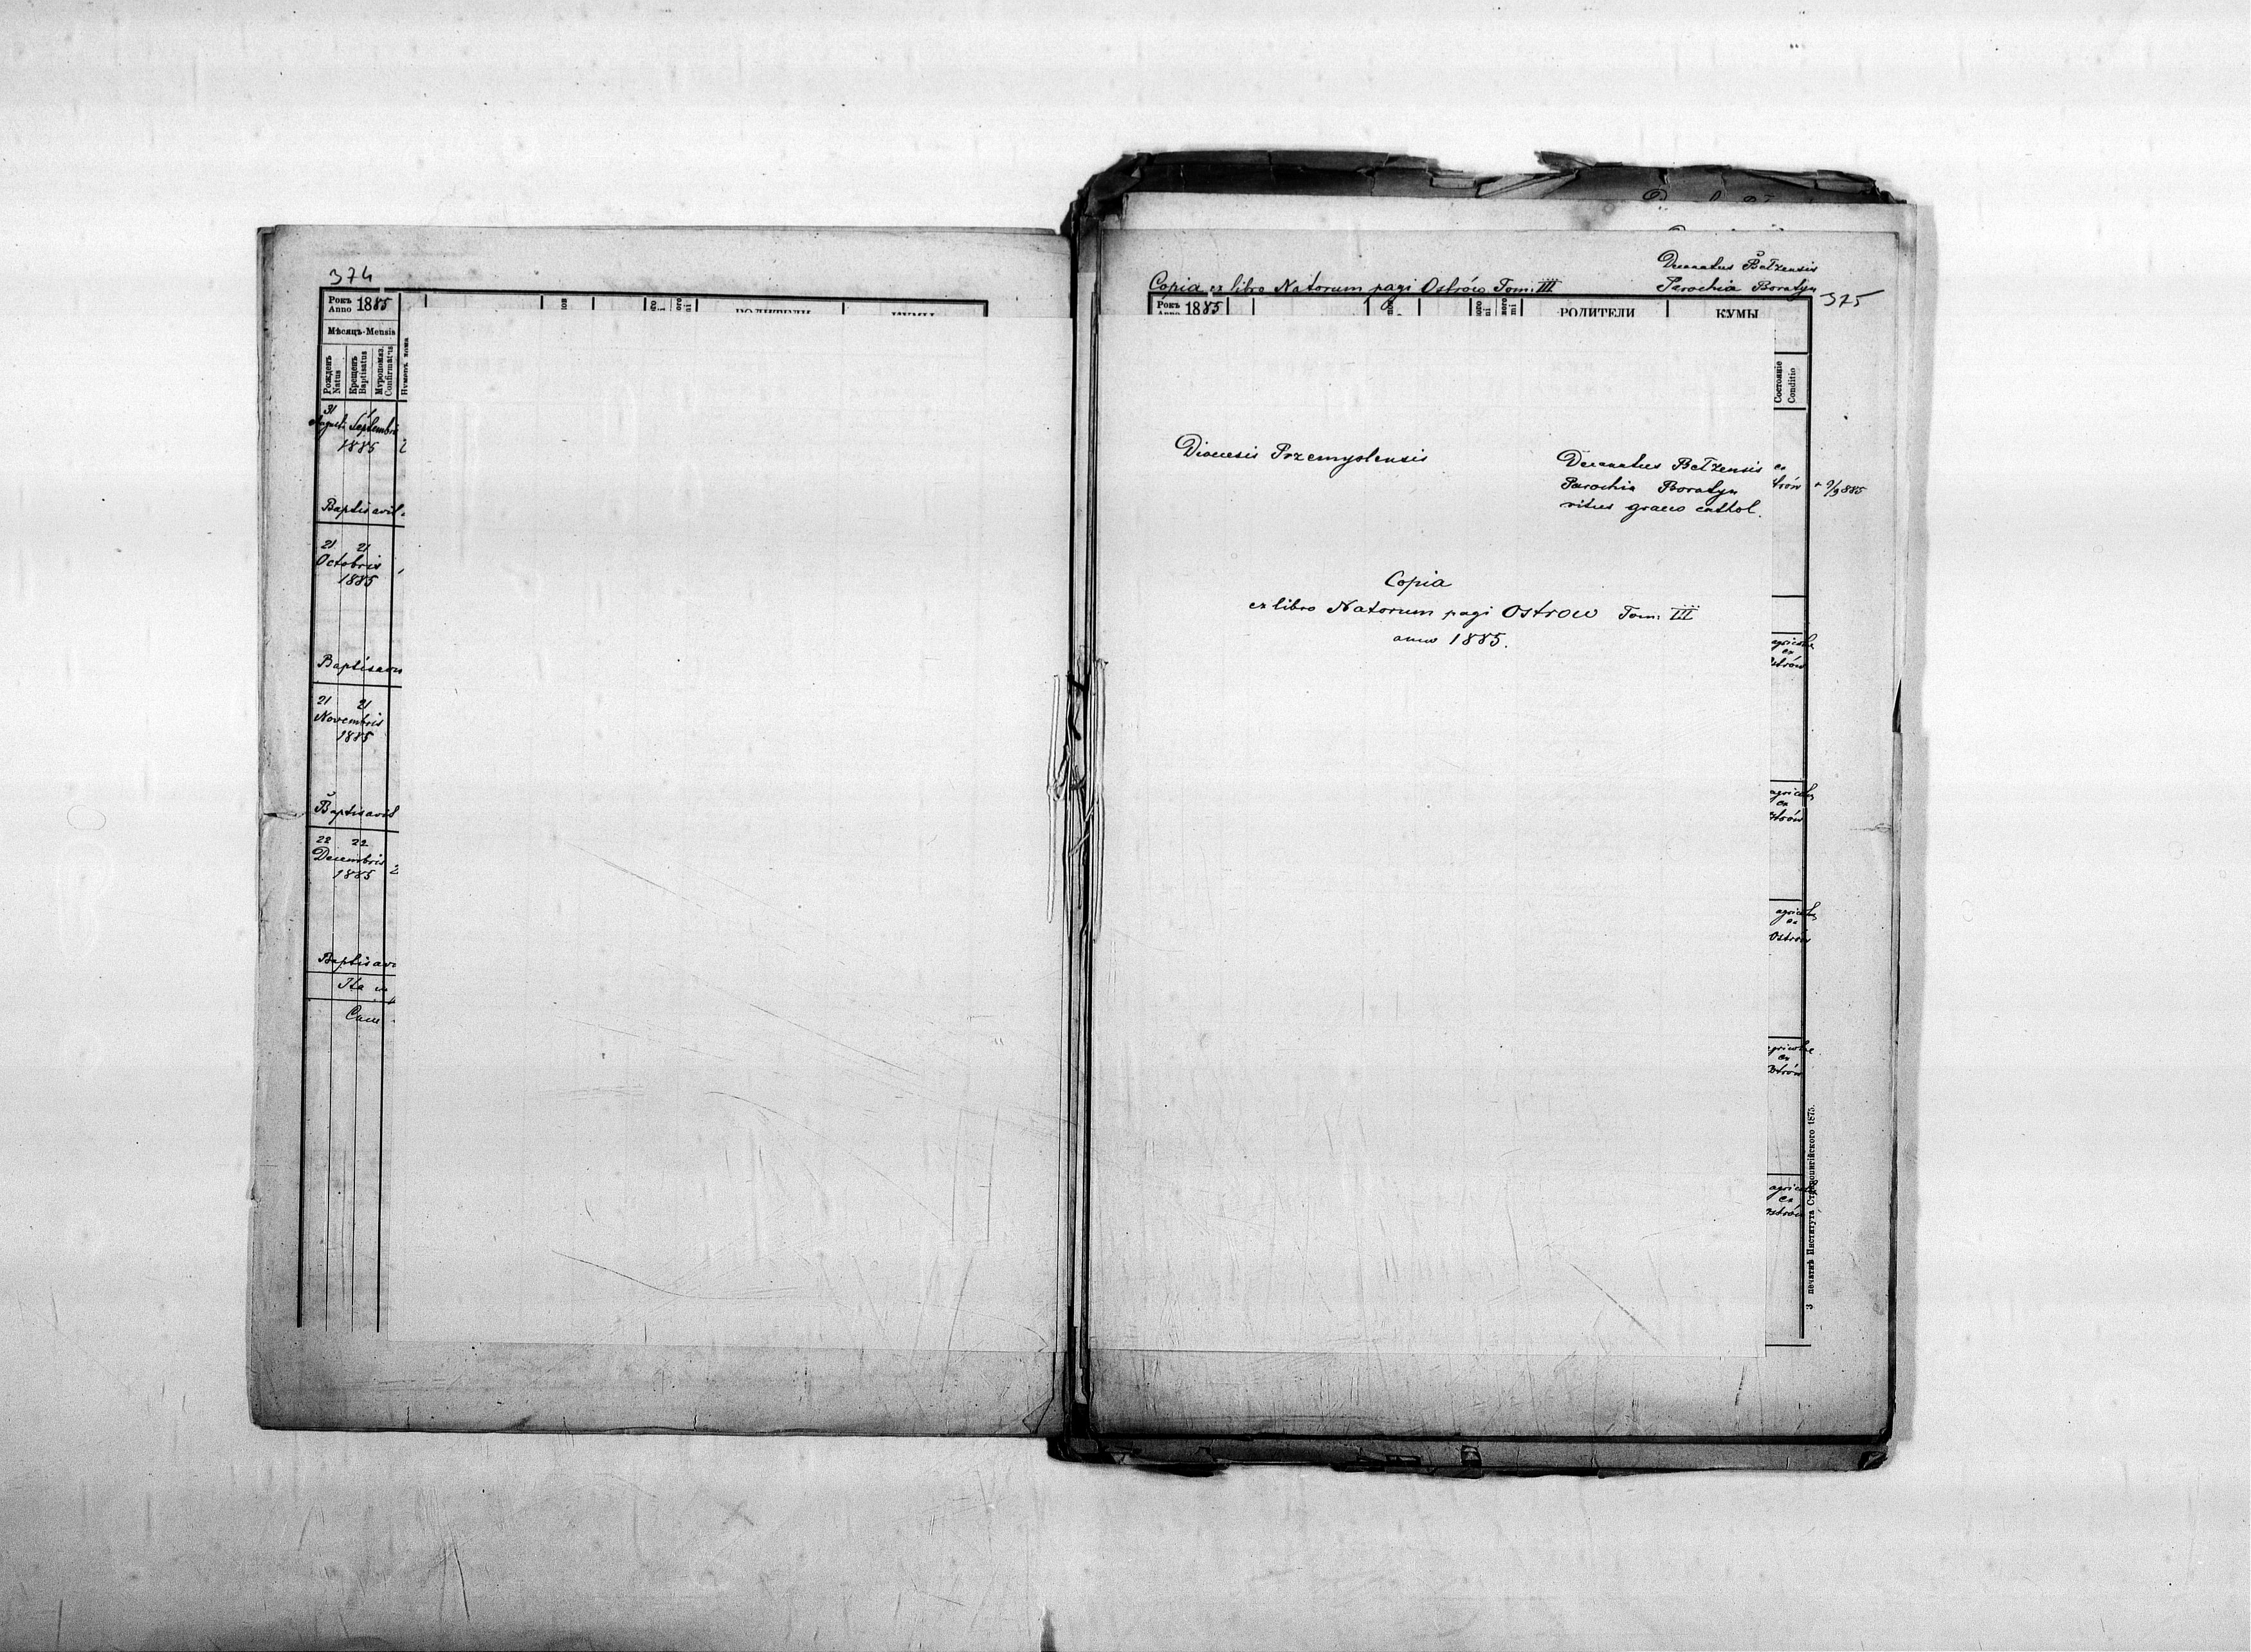 374
Рокъ
Anno 1885
Мѣсяцъ-Mensis
Рожденъ
Natus
Крещенъ
Baptisatus
Мѵропомаз.
Confirmatus
Нумеръ дома
31 1
Augusti Septembris
1885
Baptisavit
21 21
Octobris
1885
Baptisavit
21 21
Novembris
1885
Baptisavit
22 22
Decembris
1885
Baptisavi
Ita
Cam
РОДИТЕЛИ КУМЫ
Decanatus Bełzensis
Copia ex libro Natorum pagi Ostrów Tom: III Parochia Boratyn
375
Рокъ
Anno 1885
РОДИТЕЛИ КУМЫ
Состояніе
Conditio
Dioecesis Przemyslensis
Decanatus Bełzensis
Parochia Boratyn
ritus graeco cathol.
Copia
ex libro Natorum pagi Ostrow Tom: III
anno 1885.
ex
trów + 9/9 885
agricola
ex
Ostrów
agricola
ex
Ostrów
agricola
ex
Ostrów
agricolae
ex
Ostrów
agricola
ex
Ostrów
З печатнѣ Института Ставропигійского 1875.